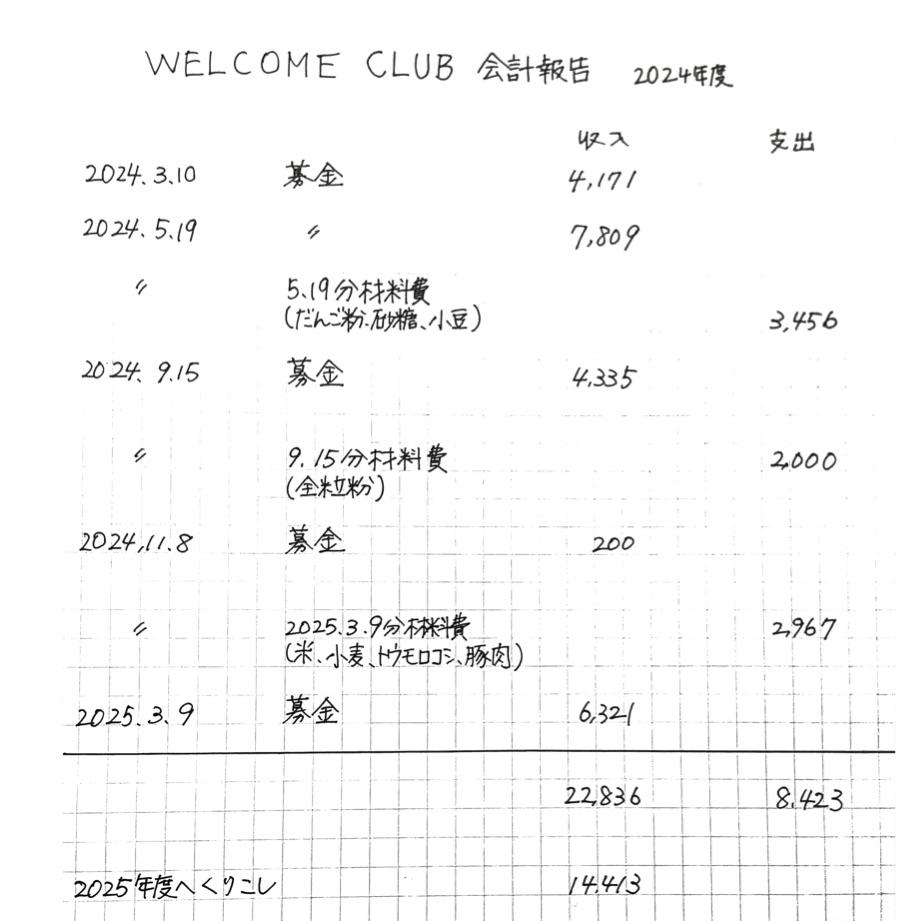 WELCOME CLUB 会計報告 2024年度
収入 支出
2024.3.10 募金 4,171
2024.5.19 〃 7,809
〃 5.19分材料費
(だんご粉、砂糖、小豆) 3,456
2024.9.15 募金 4,335
〃 9.15分材料費 2,000
(全粒粉)
2024.11.8 募金 200
〃 2025.3.9分材料費 2,967
(米、小麦、トウモロコシ、豚肉)
2025.3.9 募金 6,321
22,836 8,423
2025年度へくりこし 14,413